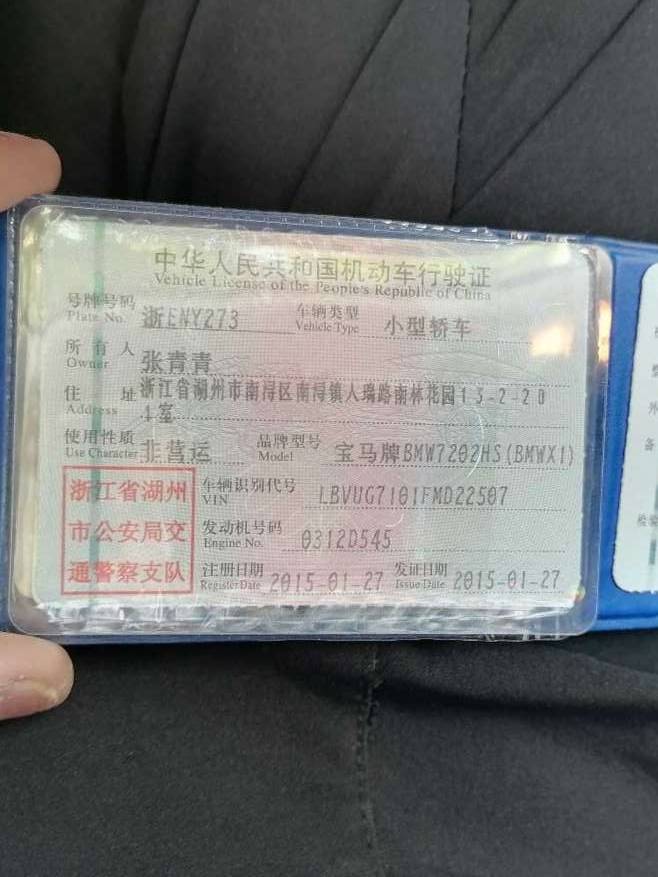 中华人民共和国机动车行驶证
Vehicle License of the People's Republic of China
号牌号码 浙ENY273 车辆类型 小型轿车
Plate No. Vehicle Type
所有人 张青青
Owner
住址 浙江省湖州市南浔区南浔镇人瑞路南林花园13-2-20
Address 4室
使用性质 非营运 品牌型号 宝马牌BMW7202HS(BMWX1)
Use Character Model
浙江省湖州
市公安局交
通警察支队
车辆识别代号 LBVUG7101FMD22507
VIN
发动机号码 0312D545
Engine No.
注册日期 2015-01-27 发证日期 2015-01-27
Register Date Issue Date
备
检验